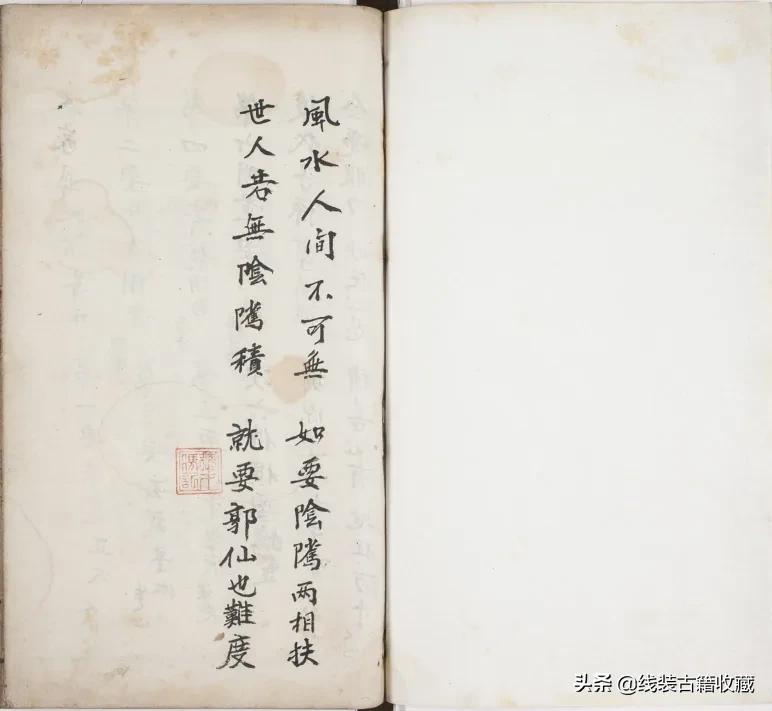 風水人间不可無　如要陰隲两相扶
世人若無陰隲積　就要郭仙也難度
头条 @线装古籍收藏